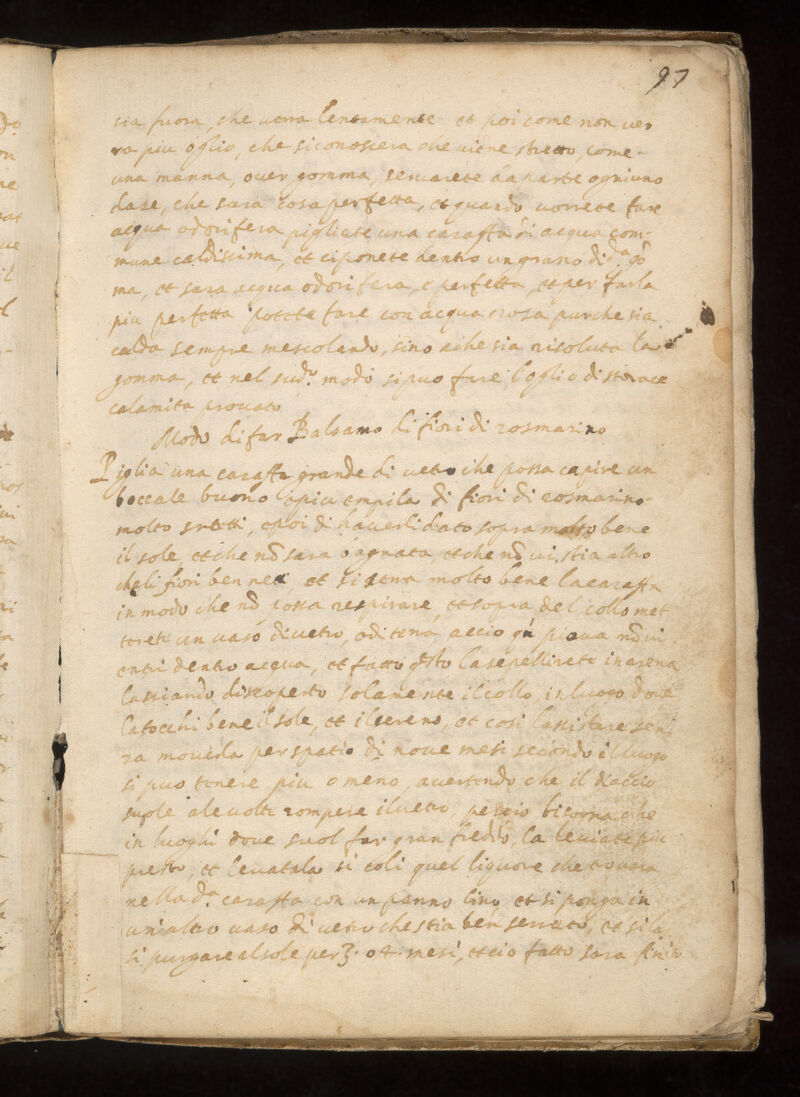 97
sia fuora, che verra lentamente et poi come non ver
ra piu oglio, che si conoscera che viene stretto, come
una manna, over gomma, servarete da parte ogniuno
da se, che sara cosa perfetta, et quando vorrete fare
acqua odorifera pigliate una caraffa di acqua com-
mune caldissima, et ci ponete dentro un grano di da go
ma, et sara acqua odorifera, e perfetta, et per farla
piu perfetta potete fare con acqua rosa purche sia
calda sempre mescolando, sino a che sia risoluta la
gomma, et nel sudo modo si puo fare l'oglio di storace
calamita provato
Modo di far Balsamo di fiori di rosmarino
Piglia una caraffa grande di vetro che possa capire un
boccale buono e piu empila di fiori di rosmarino
molto stretti, e poi di haverli dato sopra molto bene
il sole et che nō sara bagnata, et che nō vi stia altro
che li fiori ben neti, et si serra molto bene la caraffa
in modo che nō possa respirare, et sopra del collo met
terete un vaso di vetro, o di terra accio qñ piova nō vi
entri dentro acqua, et fatto qsto la sepellirete in arena
lassiando discoperto solamente il collo, in luogo dove
la tocchi bene il sole, et il sereno, et cosi lassi stare sen
za moverla per spatio di nove mesi secondo il luogo
si puo tenere piu o meno, avertendo che il diaccio
suole ale volte rompere il vetro, percio bisogna che
in luoghi dove suol far gran freddo, la leviate piu
presto, et levatala si coli quel liquore che trovara
nella da caraffa con un panno lino et si ponga in
un altro vaso di vetro che stia ben serrato, et si la
si purgare al sole per 3. o 4. mesi, et cio fatto sara finito